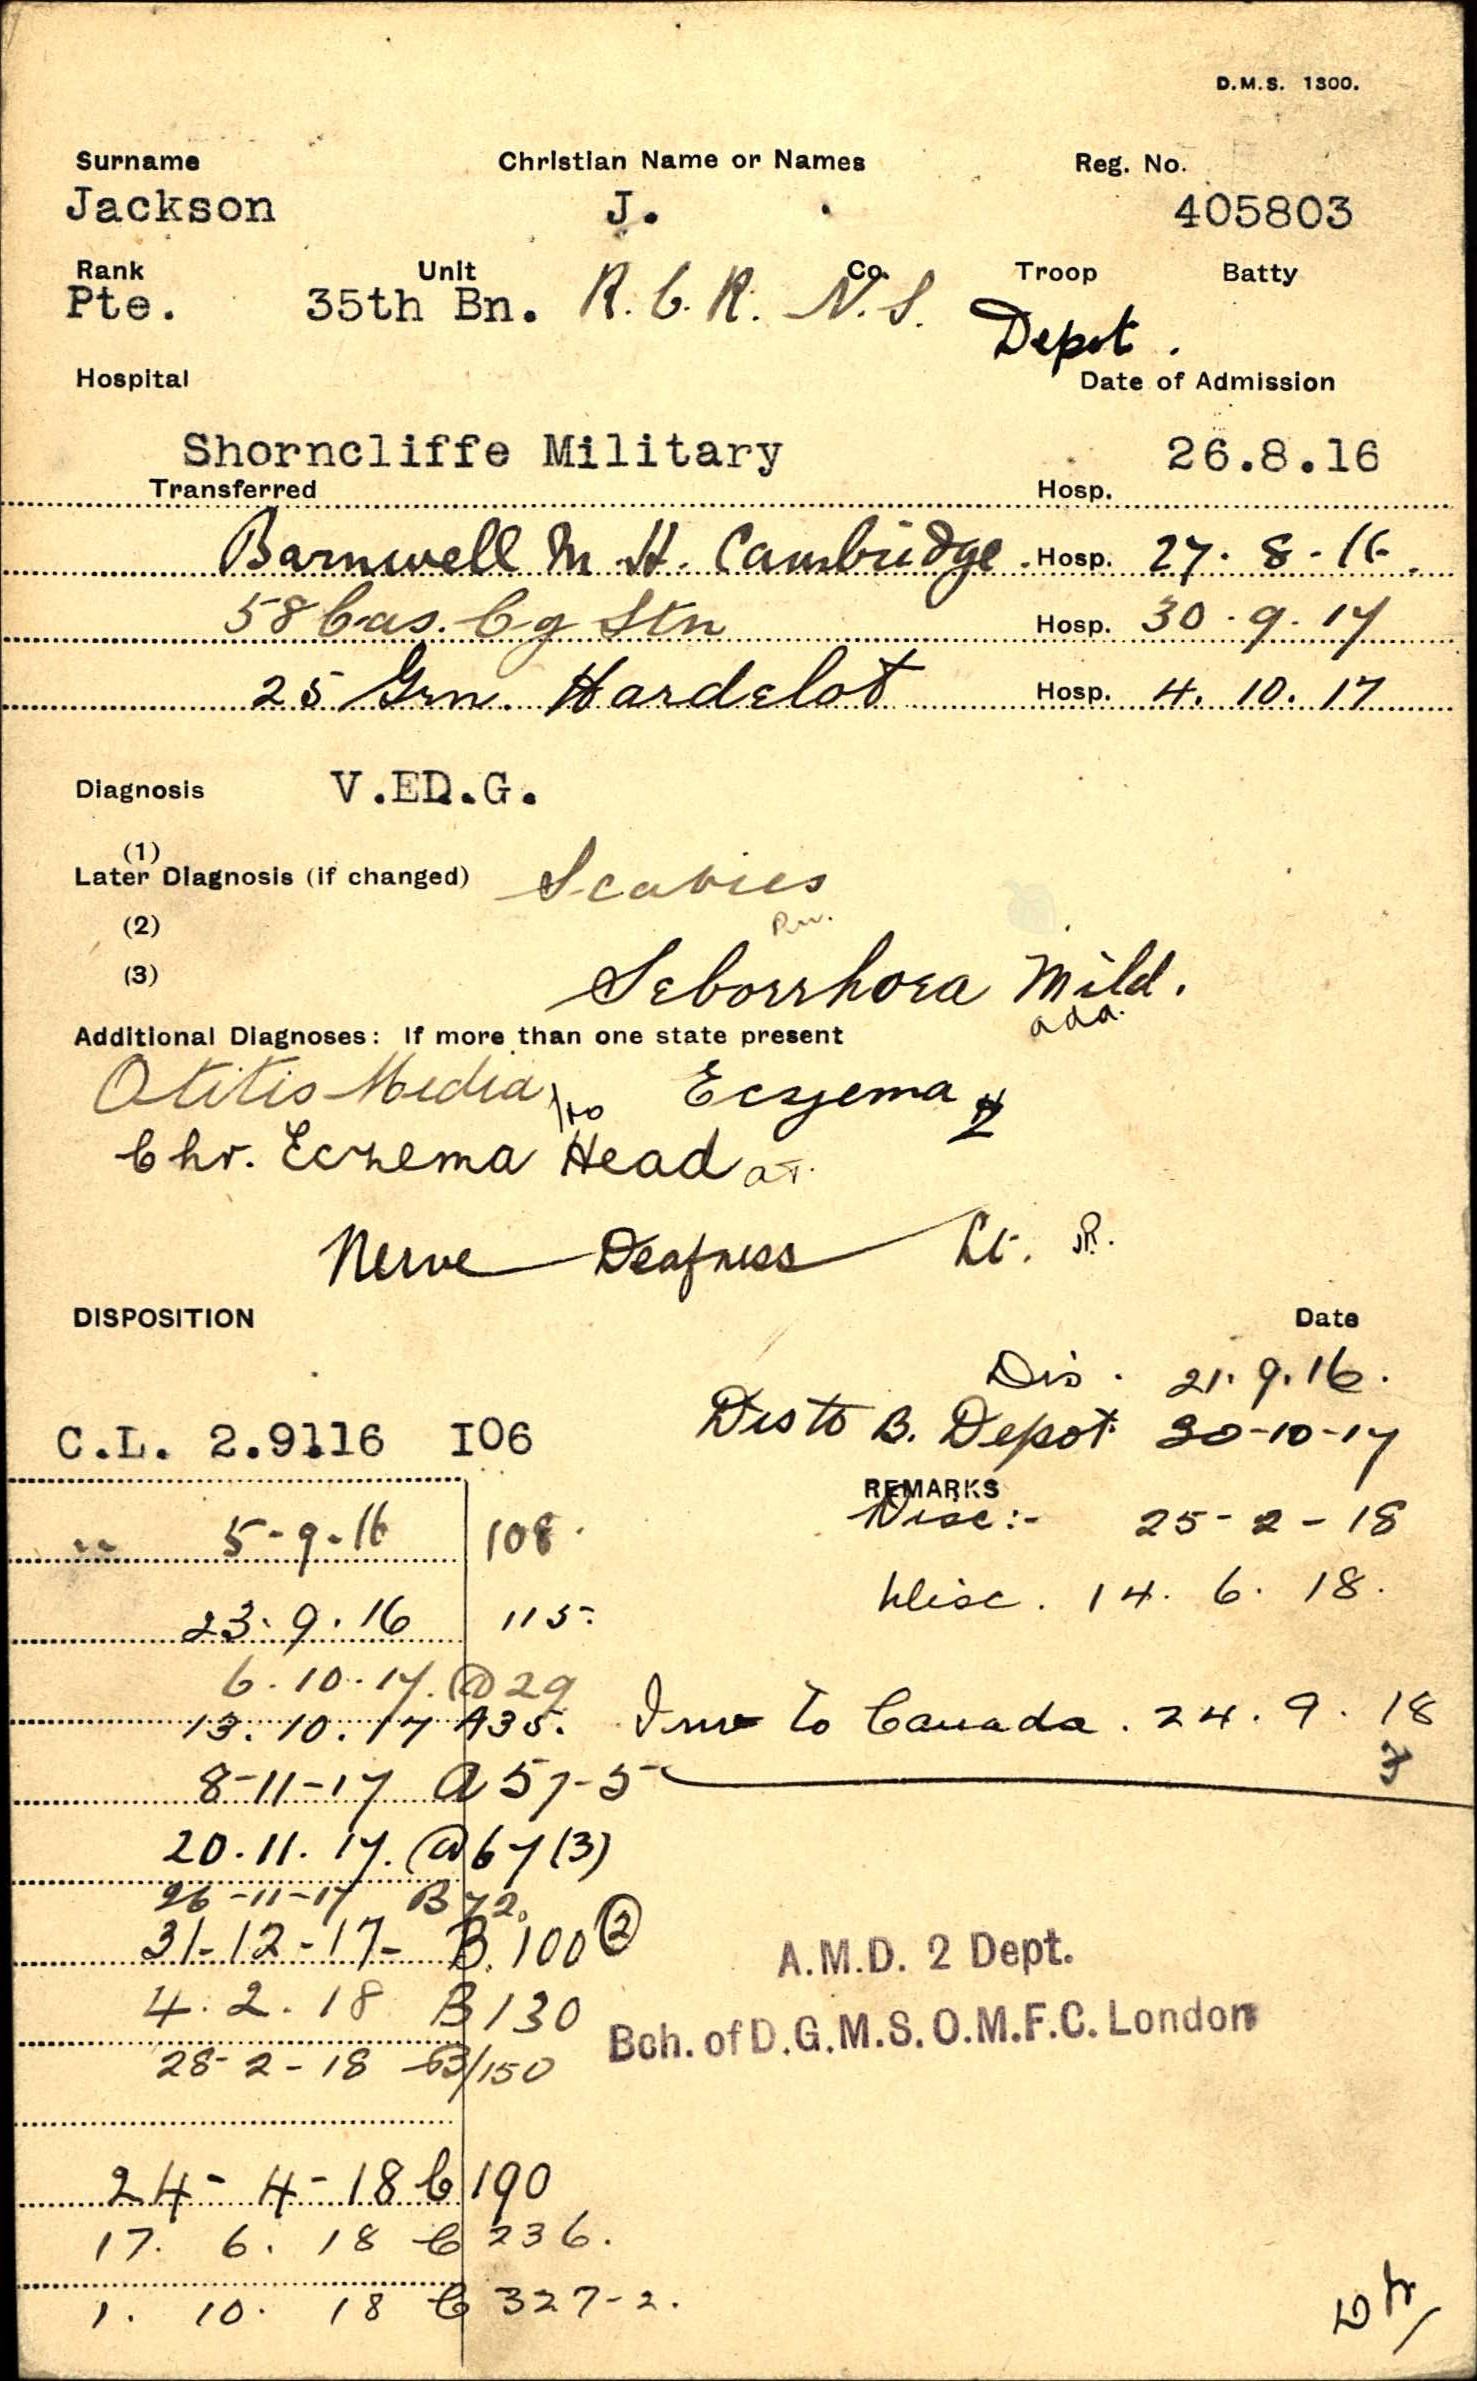 D.M.S. 1300.
Surname Christian Name or Names Reg. No.
Jackson J. 405803
Rank Unit Co. Troop Batty
Pte. 35th Bn. R.C.R. N.S. Depot.
Hospital Date of Admission
Shorncliffe Military 26.8.16
Transferred Hosp.
Barnwell M.H. Cambridge. Hosp. 27.8-16.
58 Cas. Cg Stn Hosp. 30.9.17
25 Gen. Hardelot Hosp. 4.10.17
Diagnosis V.ED.G.
(1)
Later Diagnosis (if changed) Scabies
(2)
(3) Seborrhoea Mild.
Additional Diagnoses: If more than one state present
Otitis Media Eczema
Chr. Eczema Head
Nerve Deafness Lt.
DISPOSITION Date
Dis. 21.9.16.
Dis to B. Depot 30-10-17
C.L. 2.9116 I06
REMARKS
Disc:- 25-2-18
5-9-16 108
Disc. 14.6.18.
23.9.16 115
6.10.17. @ 29
13.10.17 A35. Inv to Canada. 24.9.18
8-11-17 A 57-5
20.11.17. @ 67(3)
26-11-17 B 72.
31-12-17- B.100 (2)
A.M.D. 2 Dept.
4.2.18 B 130
Bch. of D.G.M.S. O.M.F.C. London
28-2-18 B/150
24-4-18 C 190
17. 6. 18 C 236.
1. 10. 18 C 327-2.